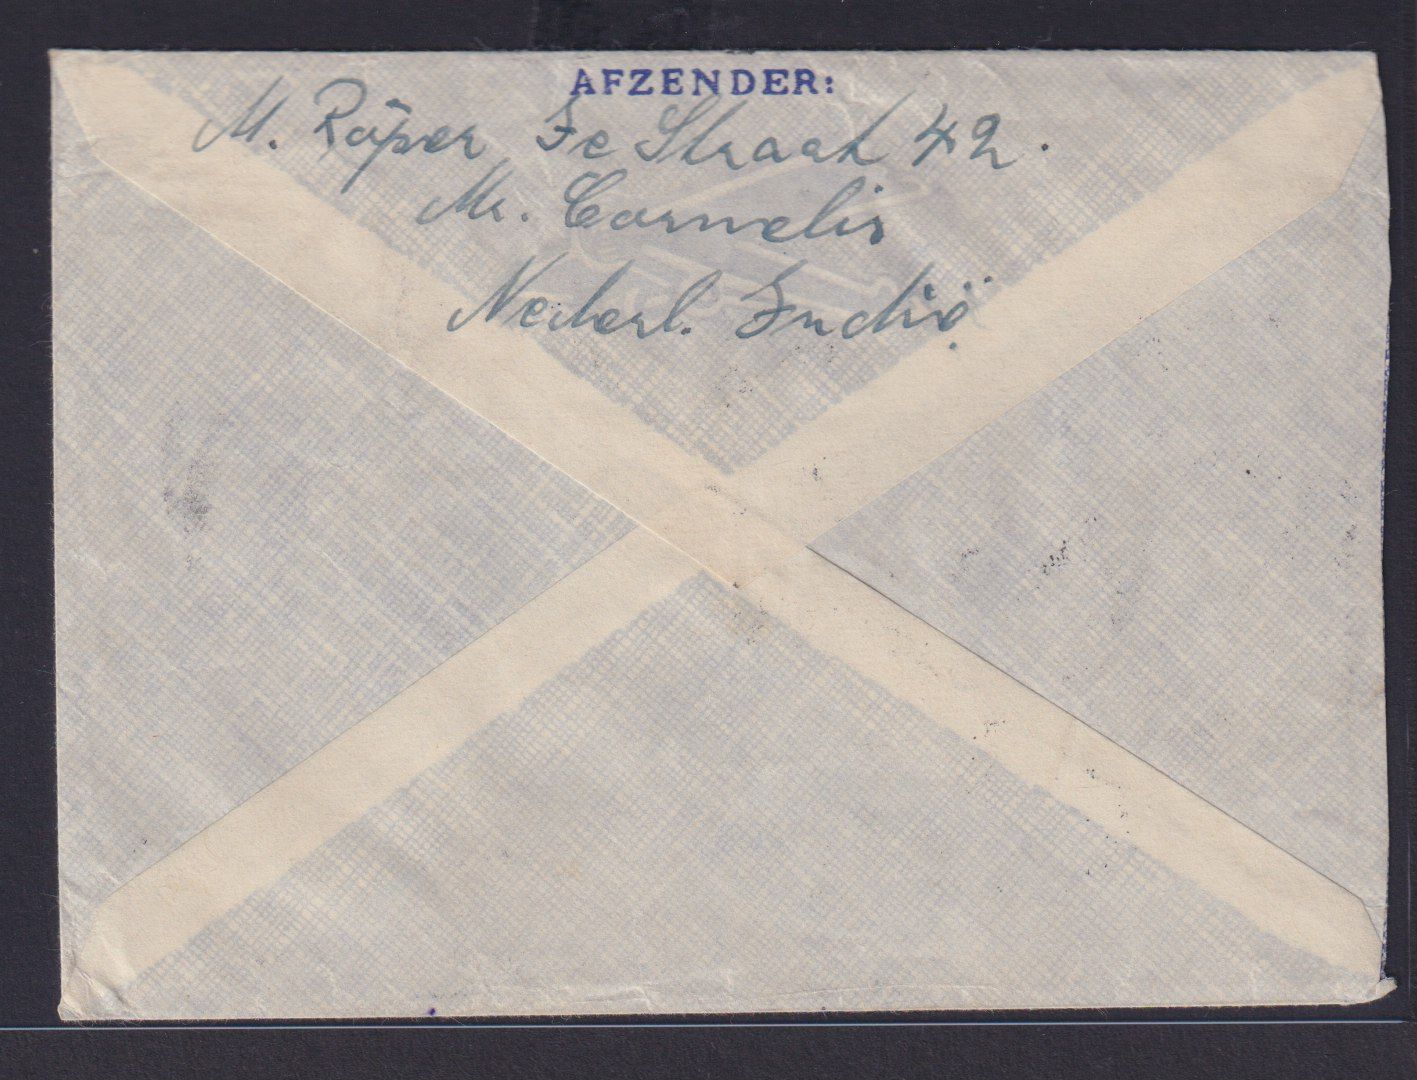 AFZENDER:
M. Röper Je Straat 42.
Mr. Cornelis
Nederl. Indië